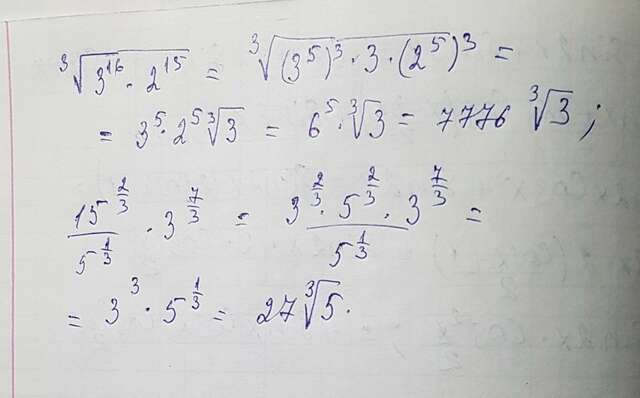 ∛(3¹⁶ · 2¹⁵) = ∛((3⁵)³ · 3 · (2⁵)³) =
= 3⁵ · 2⁵ ∛3 = 6⁵ · ∛3 = 7776 ∛3 ;
15^(2/3) / 5^(1/3) · 3^(7/3) = (3^(2/3) · 5^(2/3) · 3^(7/3)) / 5^(1/3) =
= 3³ · 5^(1/3) = 27 ∛5.